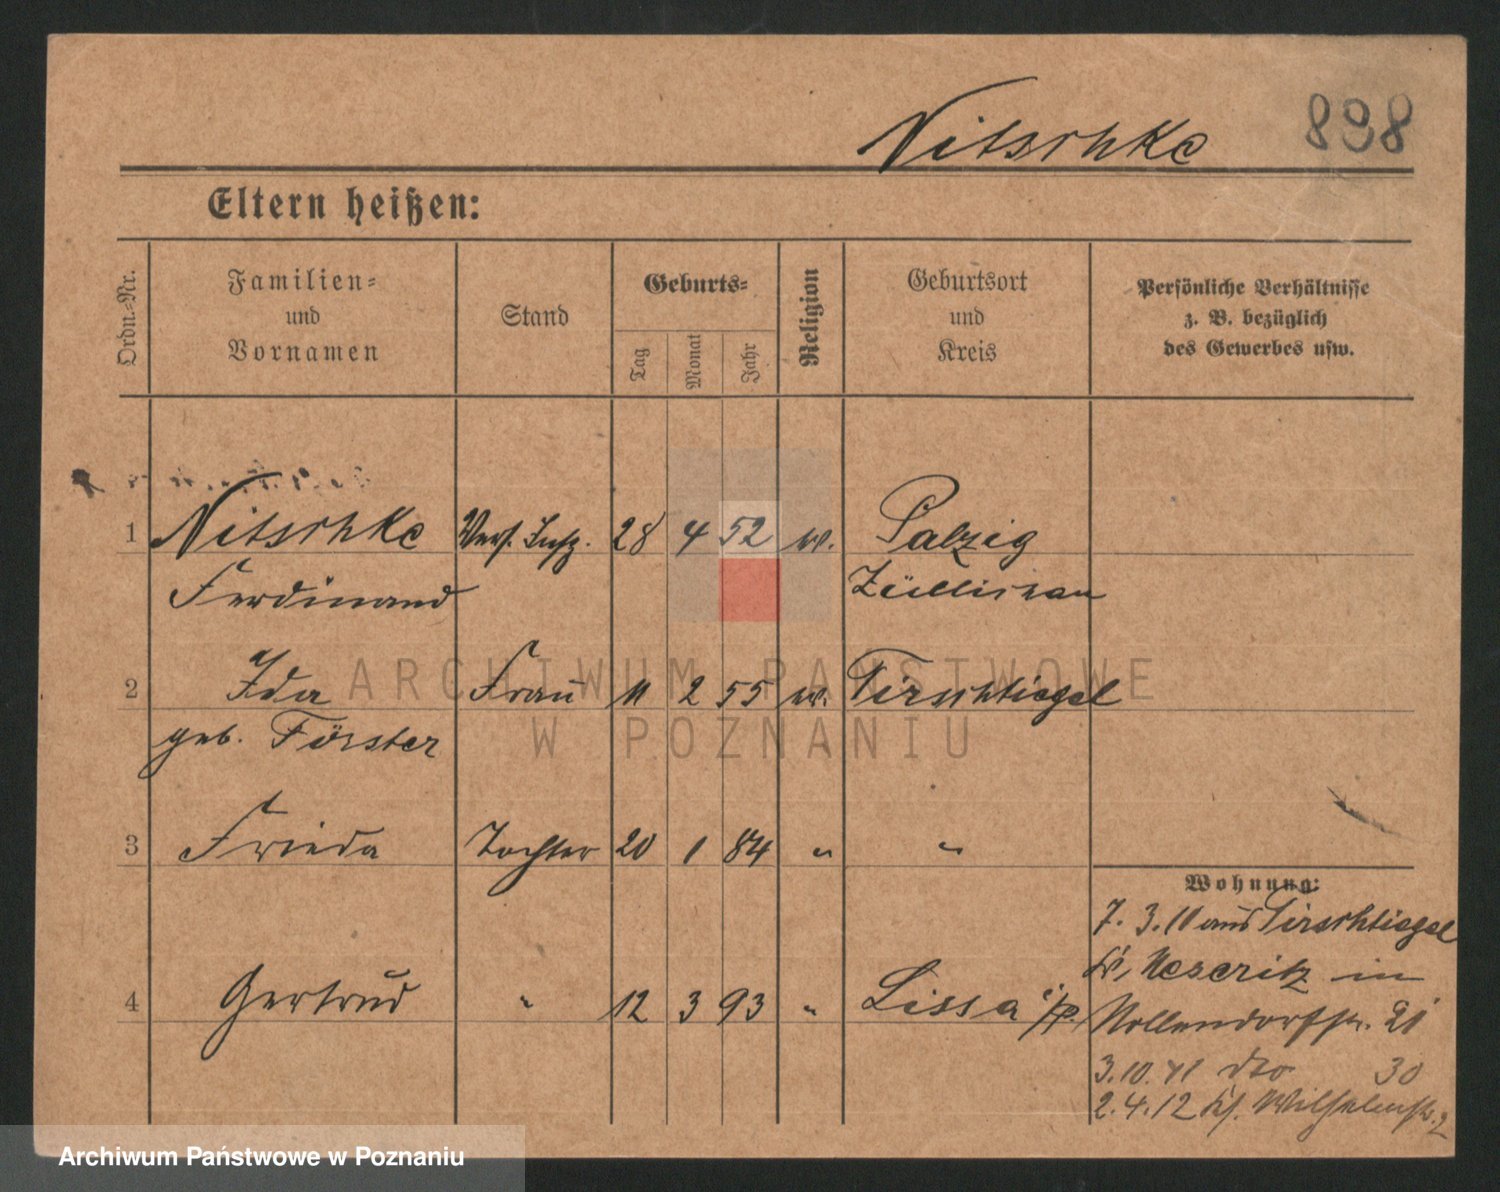 Nitschke 898
Eltern heißen:
Ordn.-Nr. Familien- und Vornamen Stand Geburts- Tag Monat Jahr Religion Geburtsort und Kreis Persönliche Verhältnisse z. B. bezüglich des Gewerbes usw.
1 Nitschke Vers. Insp. 28 4 52 ev. Palzig
Ferdinand Züllichau
2 Ida Frau 11 2 55 ev. Tirschtiegel
geb. Förster
3 Frieda Tochter 20 1 84 " "
Wohnung:
7. 3. 11 aus Tirschtiegel
Kr. Meseritz in
4 Gertrud " 12 3 93 " Lissa i/P.
Nollendorfstr. 21
3.10.11 dto 30
2.4.12 Wilhelmstr. 2
ARCHIWUM PAŃSTWOWE
W POZNANIU
Archiwum Państwowe w Poznaniu